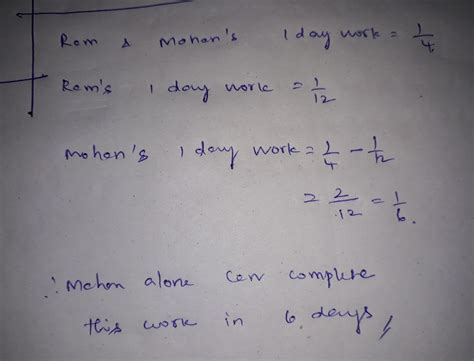 Ram & Mohan's 1 day work = 1/4
Ram's 1 day work = 1/12
Mohan's 1 day work = 1/4 - 1/12
= 2/12 = 1/6.
∴ Mohan alone can complete
this work in 6 days,